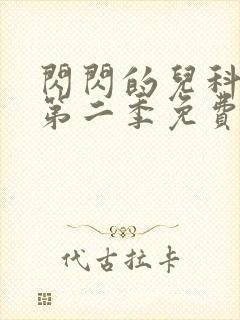 閃閃的兒科
第二季免費
代古拉卡